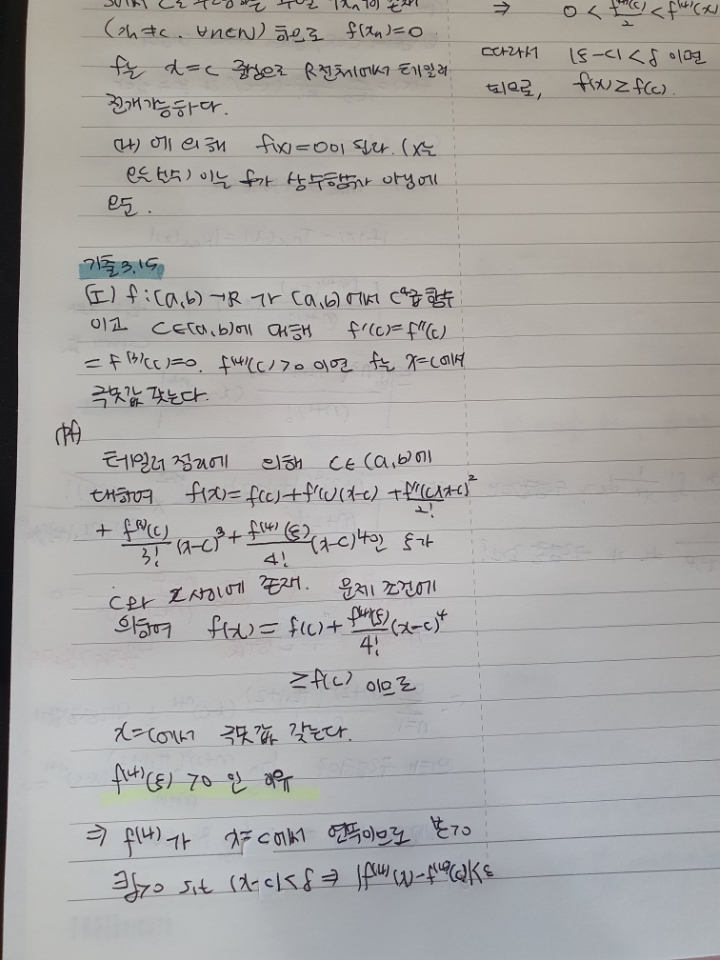 (xn≠c, ∀n∈N) 하으로 f(xn)=0
f는 x=c 중심으로 R전체에서 테일러
전개가능하다.
(나) 에 의해 f(x)=0이 된다. (x는
모든 실수) 이는 f가 상수함수가 아님에
모순.
⇒ 0 < f⁽⁴⁾(c)/2 < f⁽⁴⁾(x)
따라서 |ξ-c|<δ 이면
되므로, f(x)≥f(c).
기출3.15
(I) f:(a,b)→R 가 (a,b)에서 C⁴급 함수
이고 c∈(a,b)에 대해 f'(c)=f''(c)
=f⁽³⁾(c)=0. f⁽⁴⁾(c)>0 이면 f는 x=c에서
극솟값 갖는다.
(pf)
테일러 정리에 의해 c∈(a,b)에
대하여 f(x)=f(c)+f'(c)(x-c)+f''(c)(x-c)²/2!
+ f⁽³⁾(c)/3! (x-c)³ + f⁽⁴⁾(ξ)/4! (x-c)⁴인 ξ가
c와 x사이에 존재. 문제 조건에
의하여 f(x)=f(c)+f⁽⁴⁾(ξ)/4! (x-c)⁴
≥f(c) 이므로
x=c에서 극솟값 갖는다.
f⁽⁴⁾(ξ)>0 인 이유
⇒ f⁽⁴⁾가 x=c에서 연속이므로 ∀ε>0
∃δ>0 s.t |x-c|<δ ⇒ |f⁽⁴⁾(x)-f⁽⁴⁾(c)|<ε